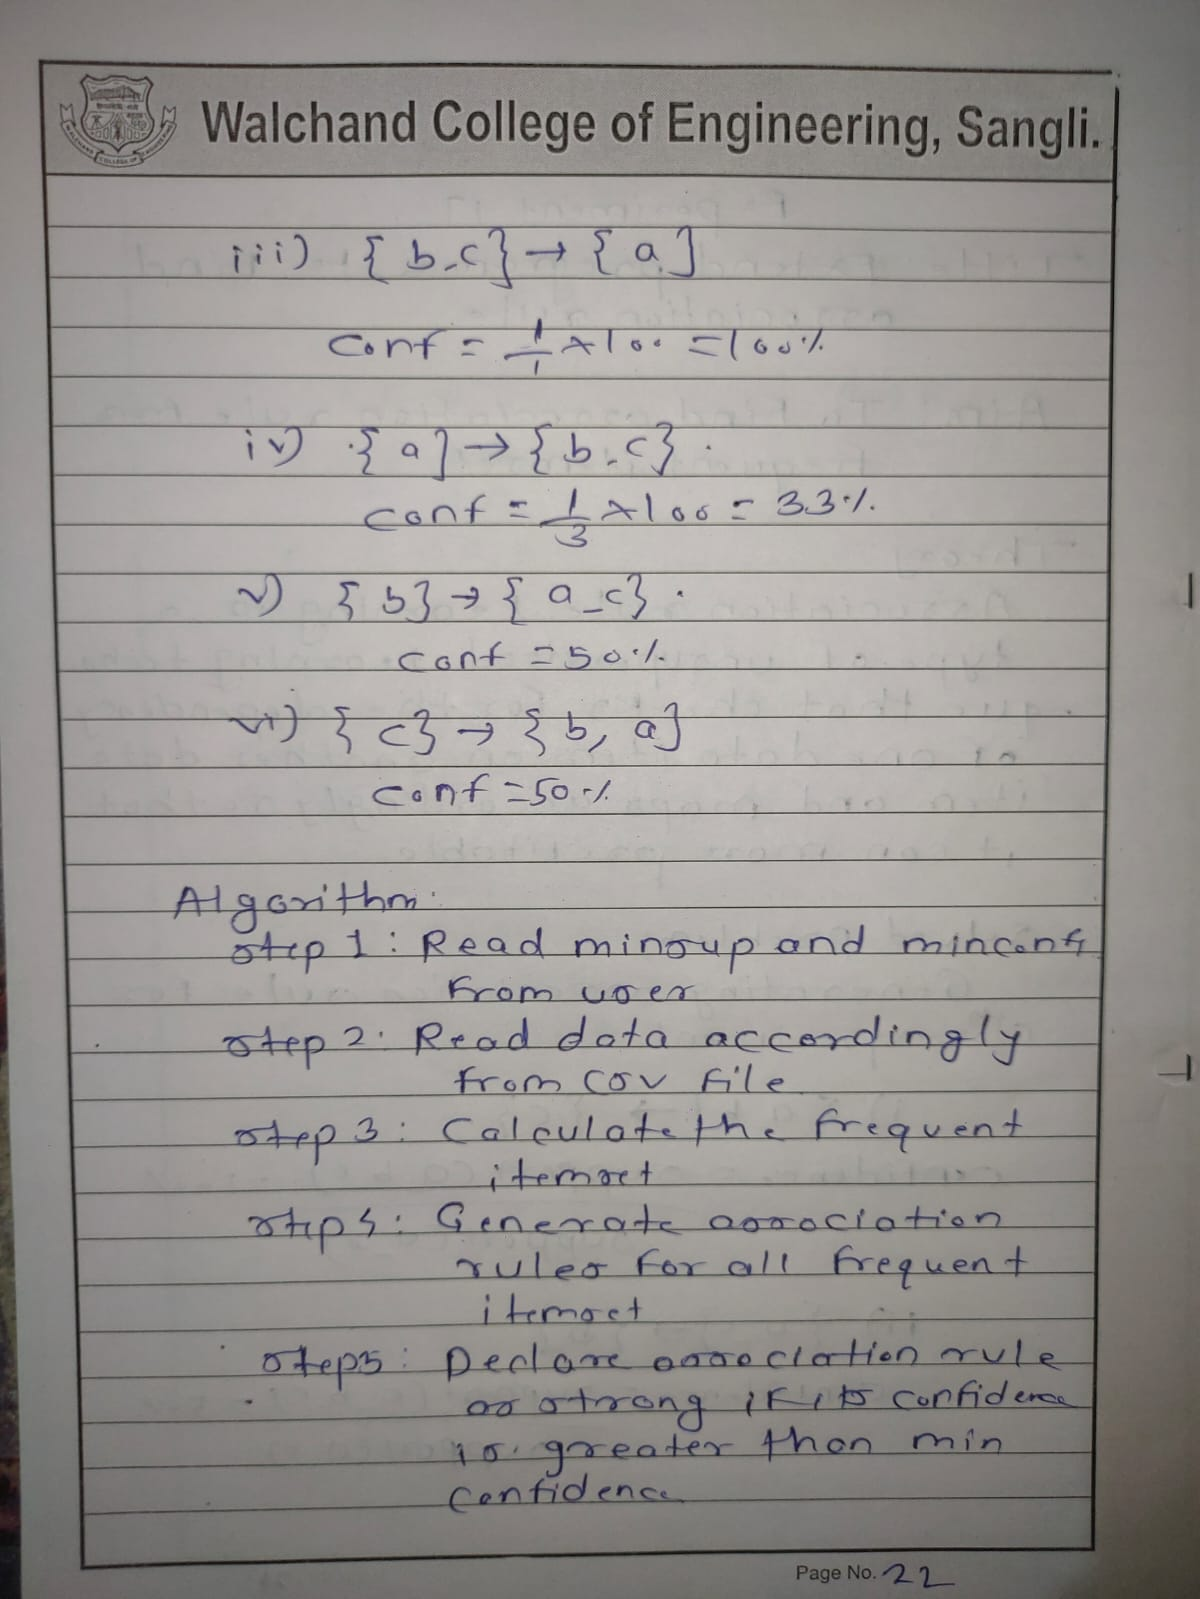 Walchand College of Engineering, Sangli.
iii) {b,c} → {a}
conf = 1/1 × 100 = 100%
iv) {a} → {b,c}.
conf = 1/3 × 100 = 33%.
v) {b} → {a,c}.
conf = 50%.
vi) {c} → {b, a}
conf = 50%
Algorithm:
step 1: Read minsup and minconf
from user
step 2: Read data accordingly
from csv file
step 3: Calculate the frequent
itemset
step 4: Generate association
rules for all frequent
itemset
step 5: Declare association rule
as strong if its confidence
is greater than min
confidence
Page No. 22